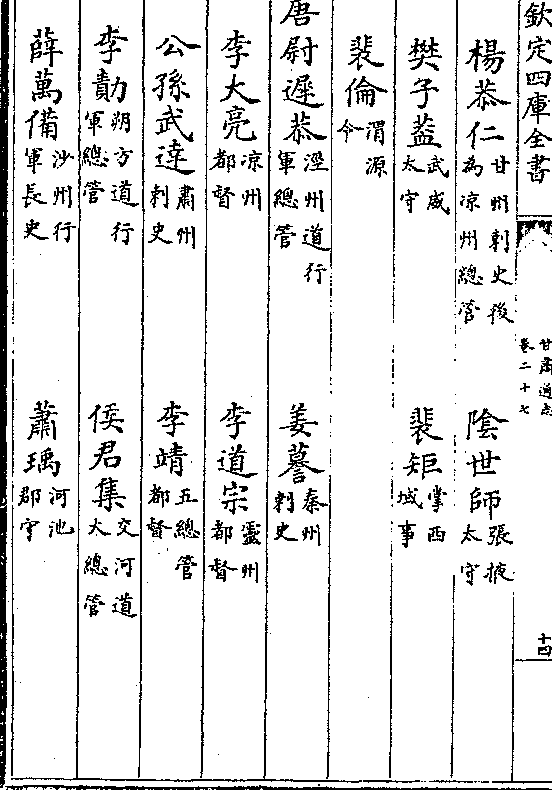 欽定四庫全書
甘肅通志
卷二十七
十四
楊恭仁 甘州刺史後為涼州總管 陰世師 張掖太守
樊子蓋 武威太守 裴矩 掌西域事
裴倫 渭源令
唐尉遲恭 涇州道行軍總管 姜謩 秦州刺史
李大亮 凉州都督 李道宗 靈州都督
公孫武達 肅州刺史 李靖 五總管都督
李勣 朔方道行軍總管 侯君集 交河道大總管
薛萬備 沙州行軍長史 蕭瑀 河池郡守